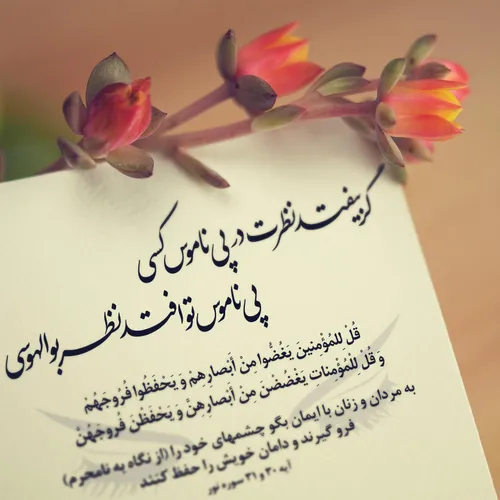 گر بیفتد نظرت در پی ناموس کسی
پی ناموس تو افتد نظر بوالهوسی
قُلْ لِلمُؤْمنینَ یَغُضُّوا مِنْ أَبصارِهِمْ وَ یَحْفَظُوا فُروجَهُمْ
وَ قُلْ لِلمُؤْمِناتِ یَغْضُضنَ مِن أَبصارِهِنَّ وَ یَحفَظْنَ فُروجَهُنَّ
به مردان و زنان با ایمان بگو چشمهای خود را (از نگاه به نامحرم)
فرو گیرند و دامان خویش را حفظ کنند
آیه ۳۰ و ۳۱ سوره نور